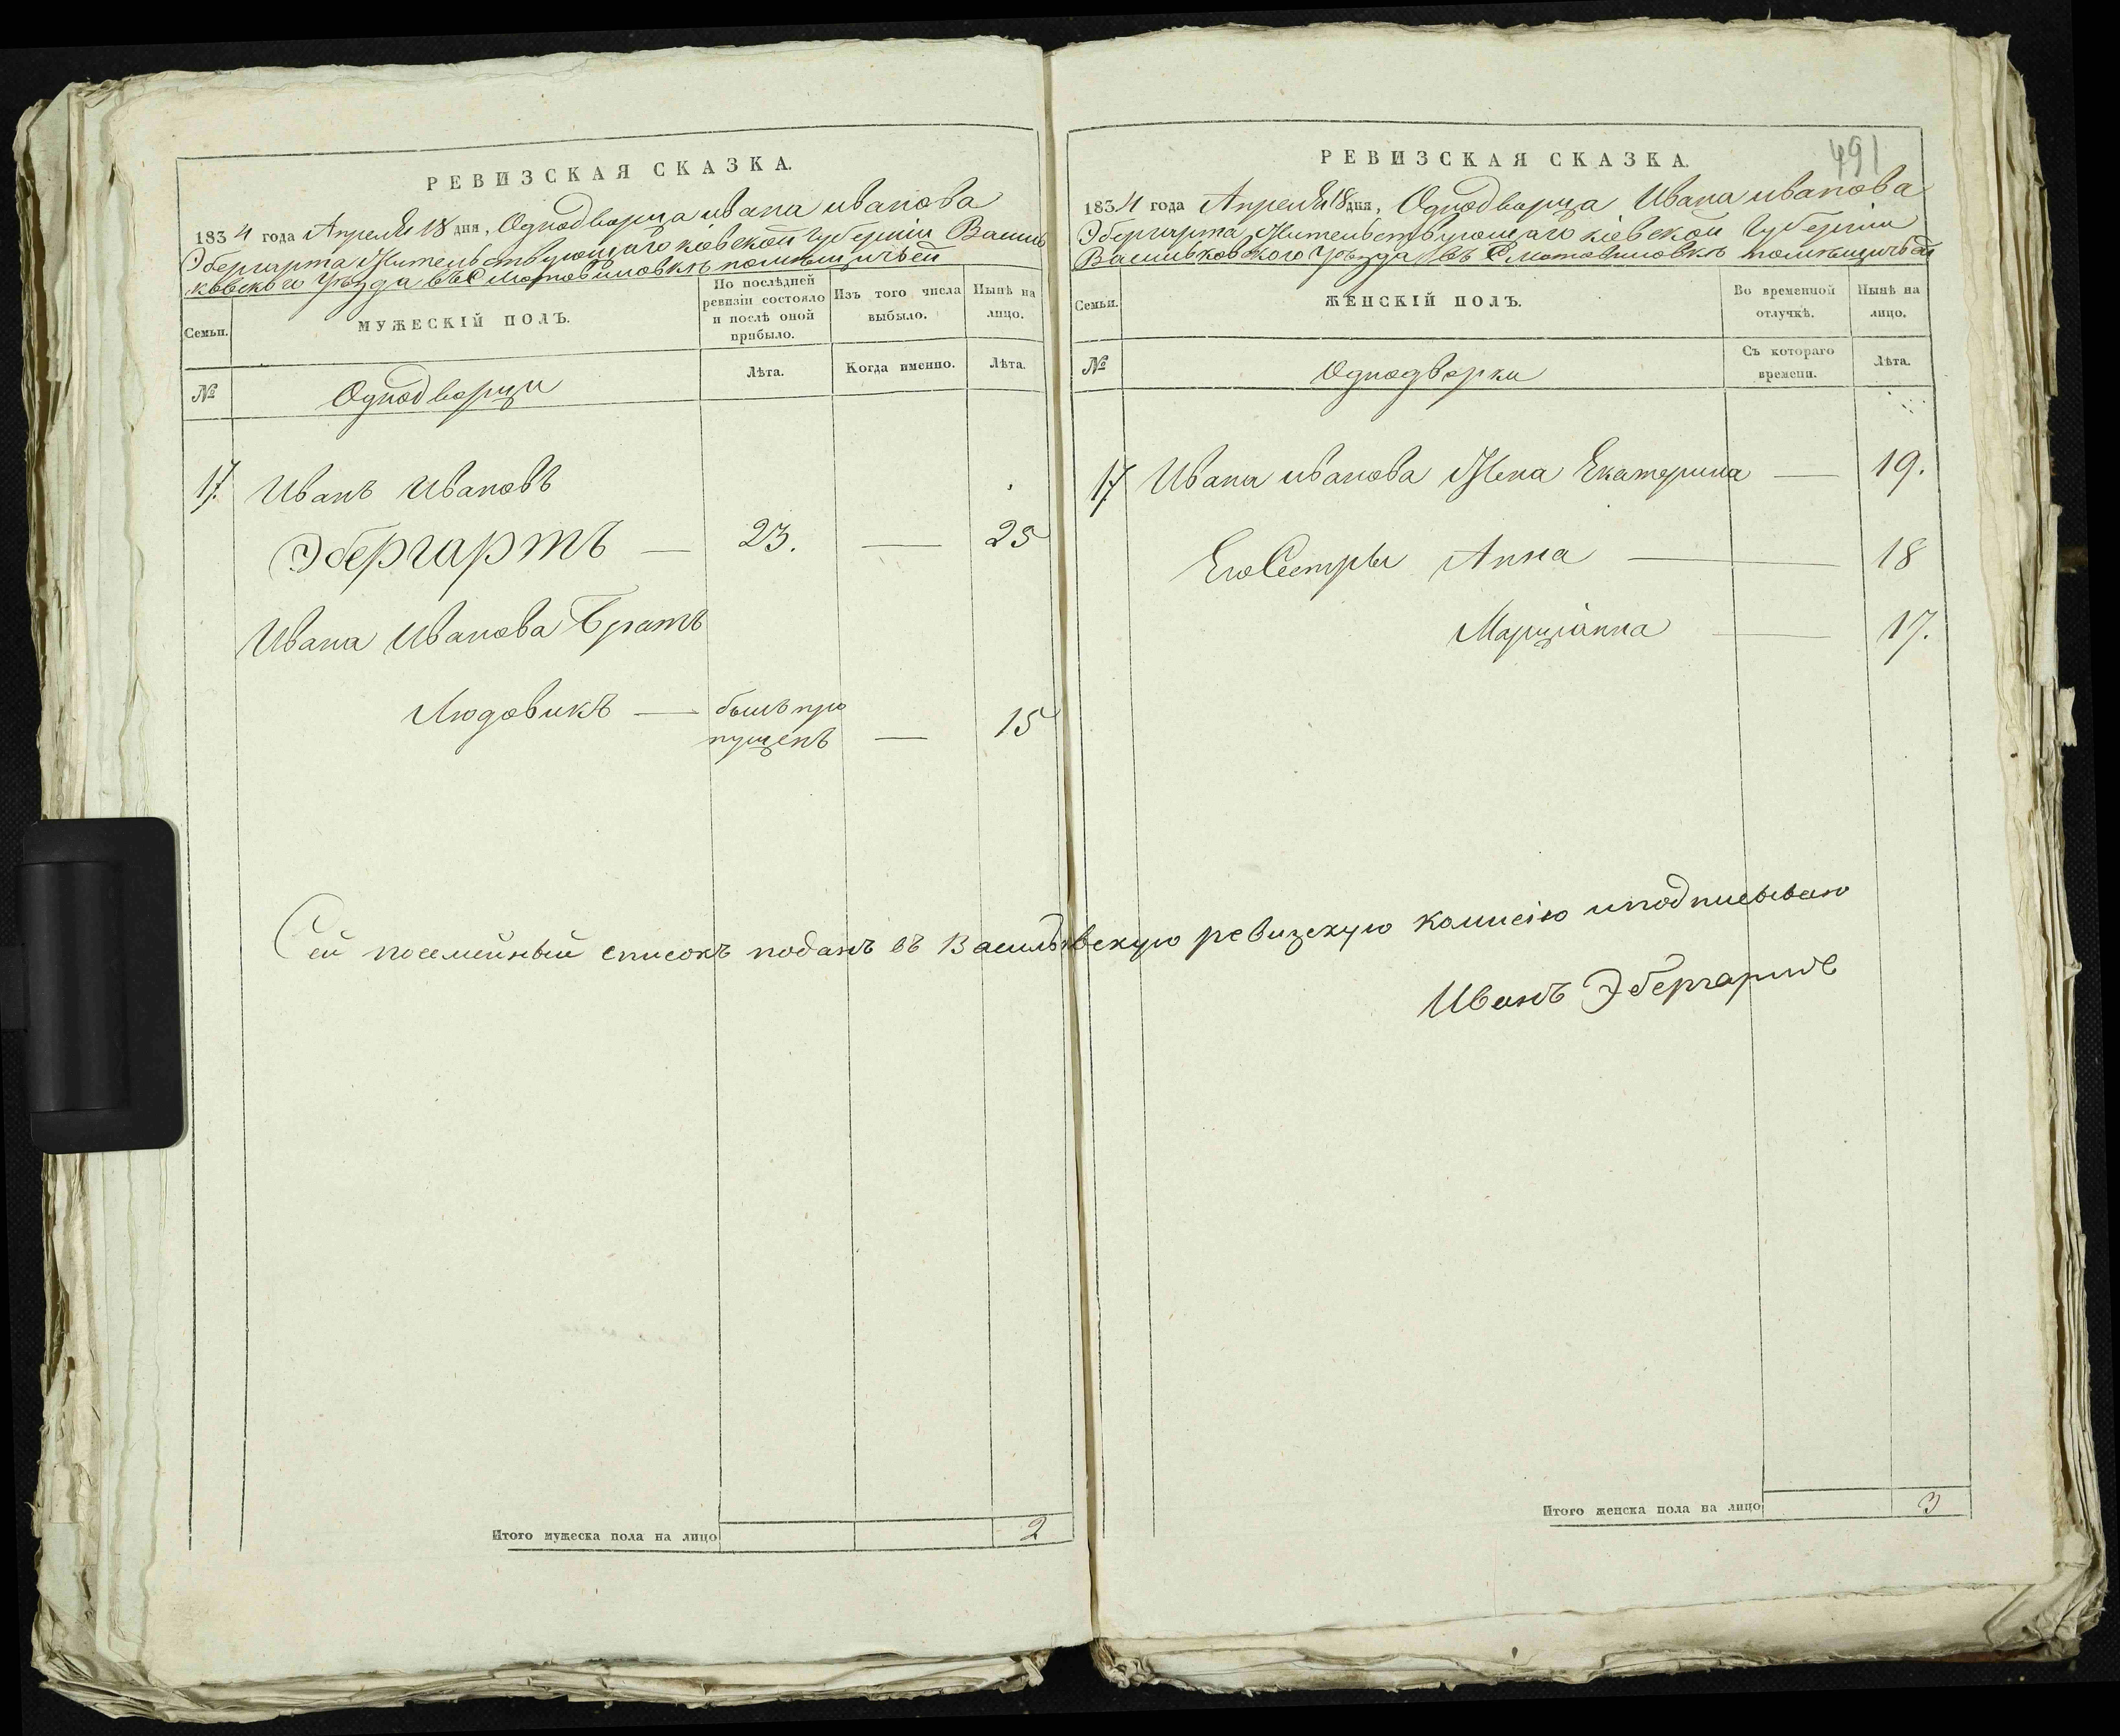 РЕВИЗСКАЯ СКАЗКА.
1834 года Апреля 18 дня, Однодворца ивана иванова
Эбергарта Жительствующаго кіевской Губерніи Василь
ковского Уѣзда въ С Мотовиловкѣ помѣщичьей
Семьи.
МУЖЕСКІЙ ПОЛЪ.
По послѣдней ревизіи состояло и послѣ оной прибыло.
Изъ того числа выбыло.
Нынѣ на лицо.
№
Однодворци
Лѣта.
Когда именно.
Лѣта.
17. Иванъ Ивановъ
Эбергартъ — 23. — 25
Ивана Иванова Братъ
Людовикъ — былъ про
пущенъ — 15
Итого мужеска пола на лицо 2
491
РЕВИЗСКАЯ СКАЗКА.
1834 года Апреля 18 дня, Однодворца Ивана иванова
Эбергарта Жительствующаго кіевской Губерніи
Васильковского Уѣзда въ С Мотовиловкѣ помѣщичьей
Семьи.
ЖЕНСКІЙ ПОЛЪ.
Во временной отлучкѣ.
Нынѣ на лицо.
№
Однодворки
Съ котораго времени.
Лѣта.
17 Ивана иванова Жена Екатерина — 19.
Его Сестры Анна — 18
Марціанна — 17.
Сей посемейный списокъ поданъ въ Васильквскую ревизскую комисію и подписываю
Иванъ Эбергартъ
Итого женска пола на лицо 3